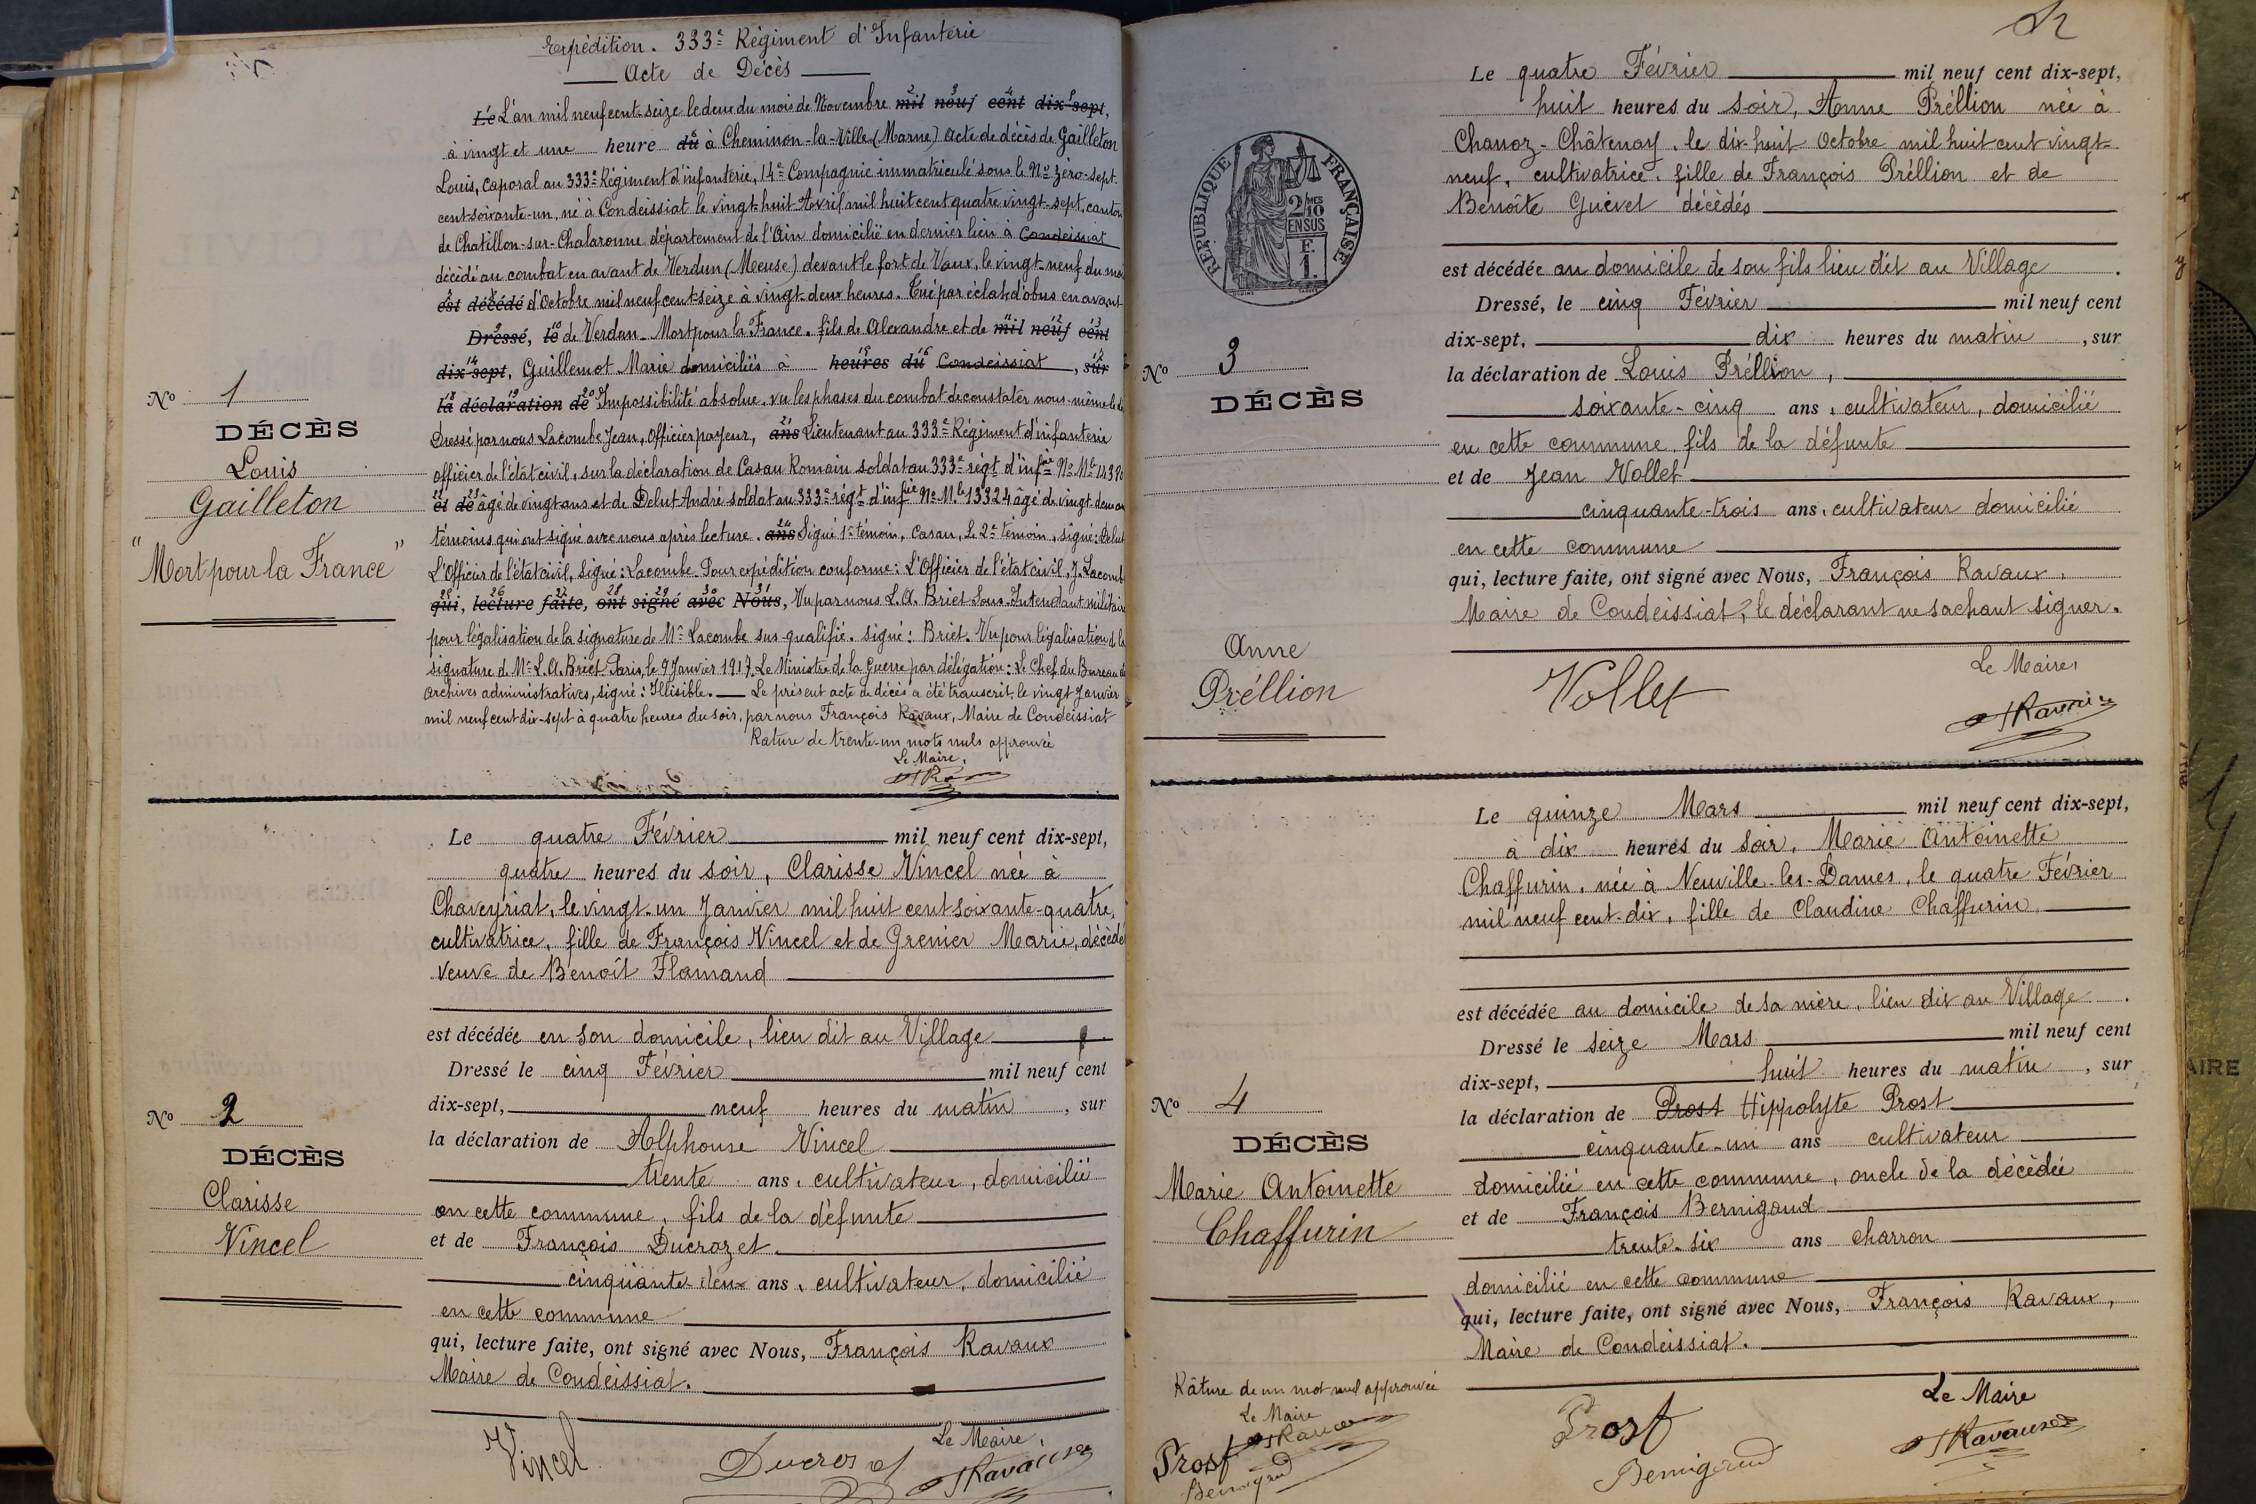 Expédition. 333e Régiment d'Infanterie
Acte de Décès
Le L'an mil neuf cent seize le deux du mois de Novembre mil neuf cent dix-sept,
à vingt et une heure du à Cheminon-la-Ville (Marne) Acte de décès de Gailleton
Louis, Caporal au 333e Régiment d'infanterie, 14e Compagnie immatriculé sous le No zéro-sept-
cent-soixante-un, né à Condeissiat le vingt-huit Avril mil huit cent quatre vingt-sept, canton
de Chatillon-sur-Chalaronne département de l'Ain domicilié en dernier lieu à Condeissiat
décédé au combat en avant de Verdun (Meuse) devant le fort de Vaux, le vingt-neuf du moi
est décédé d'Octobre mil neuf cent-seize à vingt-deux heures. Tué par éclat d'obus en avant
Dressé, le de Verdun. Mort pour la France. fils de Alexandre et de mil neuf cent
dix-sept, Guillemot Marie domiciliés à heures du Condeissiat, sur
la déclaration de Impossibilité absolue, vu les phases du combat de constater nous-même le
Dressé par nous Lacombe Jean, Officier payeur, ans Lieutenant au 333e Régiment d'infanterie
officier de l'état civil, sur la déclaration de Casau Romain soldat au 333e régt d'infie No Mle
et de âgé de vingt ans et de Delut André soldat au 333e régt d'infie No Mle 13324 âgé de vingt-deux an
témoins qui ont signé avec nous après lecture. ans Signé 1e témoin, Casau, Le 2e témoin, signé: Delut
L'Officier de l'état civil, signé: Lacombe. Pour expédition conforme: L'Officier de l'état civil, J. Lacomb
qui, lecture faite, ont signé avec Nous, Vu par nous L.A. Briet Sous-Intendant militaire
pour légalisation de la signature de Mr Lacombe sus-qualifié. signé: Briet. Vu pour légalisation de la
signature de Mr L.A. Briet Paris, le 9 Janvier 1917. Le Ministre de la Guerre par délégation: Le Chef du Bureau d
archives administratives, signé: Illisible. Le présent acte de décès a été transcrit, le vingt Janvier
mil neuf cent dix-sept à quatre heures du soir, par nous François Ravaux, Maire de Condeissiat
Rature de trente-un mots nuls approuvée
Le Maire,
No 1
DÉCÈS
Louis
Gailleton
"Mort pour la France"
Le quatre Février mil neuf cent dix-sept,
quatre heures du soir, Clarisse Vincel née à
Chaveyriat, le vingt-un Janvier mil huit cent soixante-quatre,
cultivatrice, fille de François Vincel et de Grenier Marie, décédé
veuve de Benoît Flamand
est décédée en son domicile, lieu dit au Village
Dressé le cinq Février mil neuf cent
dix-sept, neuf heures du matin, sur
la déclaration de Alphonse Vincel
trente ans, cultivateur, domicilié
en cette commune, fils de la défunte
et de François Ducrozet
cinquante-deux ans, cultivateur, domicilié
en cette commune
qui, lecture faite, ont signé avec Nous, François Ravaux
Maire de Condeissiat.
Vincel
Ducrozet
Le Maire,
Ravaux
No 2
DÉCÈS
Clarisse
Vincel
RÉPUBLIQUE FRANÇAISE
2/10
EN SUS
F.
1.
Le quatre Février mil neuf cent dix-sept,
huit heures du soir, Anne Préllion née à
Chanoz-Châtenay, le dix-huit Octobre mil huit cent vingt-
neuf, cultivatrice, fille de François Préllion et de
Benoîte Guevet décédés
est décédée au domicile de son fils lieu dit au Village.
Dressé, le cinq Février mil neuf cent
dix-sept, dix heures du matin, sur
la déclaration de Louis Préllion,
soixante-cinq ans, cultivateur, domicilié
en cette commune, fils de la défunte
et de Jean Vollet
cinquante-trois ans, cultivateur domicilié
en cette commune
qui, lecture faite, ont signé avec Nous, François Ravaux,
Maire de Condeissiat, le déclarant ne sachant signer.
Vollet
Le Maire,
Ravaux
No 3
DÉCÈS
Anne
Préllion
Le quinze Mars mil neuf cent dix-sept,
à dix heures du soir, Marie Antoinette
Chaffurin, née à Neuville-les-Dames, le quatre Février
mil neuf cent-dix, fille de Claudine Chaffurin
est décédée au domicile de sa mère, lieu dit au Village.
Dressé le seize Mars mil neuf cent
dix-sept, huit heures du matin, sur
la déclaration de Prost Hippolyte Prost
cinquante-un ans cultivateur
domicilié en cette commune, oncle de la décédée
et de François Bernigaud
trente-six ans charron
domicilié en cette commune
qui, lecture faite, ont signé avec Nous, François Ravaux,
Maire de Condeissiat.
Prost
Bernigaud
Le Maire
Ravaux
No 4
DÉCÈS
Marie Antoinette
Chaffurin
Râture de un mot nul approuvée
Le Maire
Ravaux
Prost
Bernigaud
AIRE